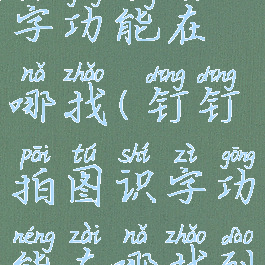 字功能在
nǎ zhǎo dīng dīng
哪找(钉钉
pāi tú shí zì gōng
拍图识字功
néng zài nǎ zhǎo dào